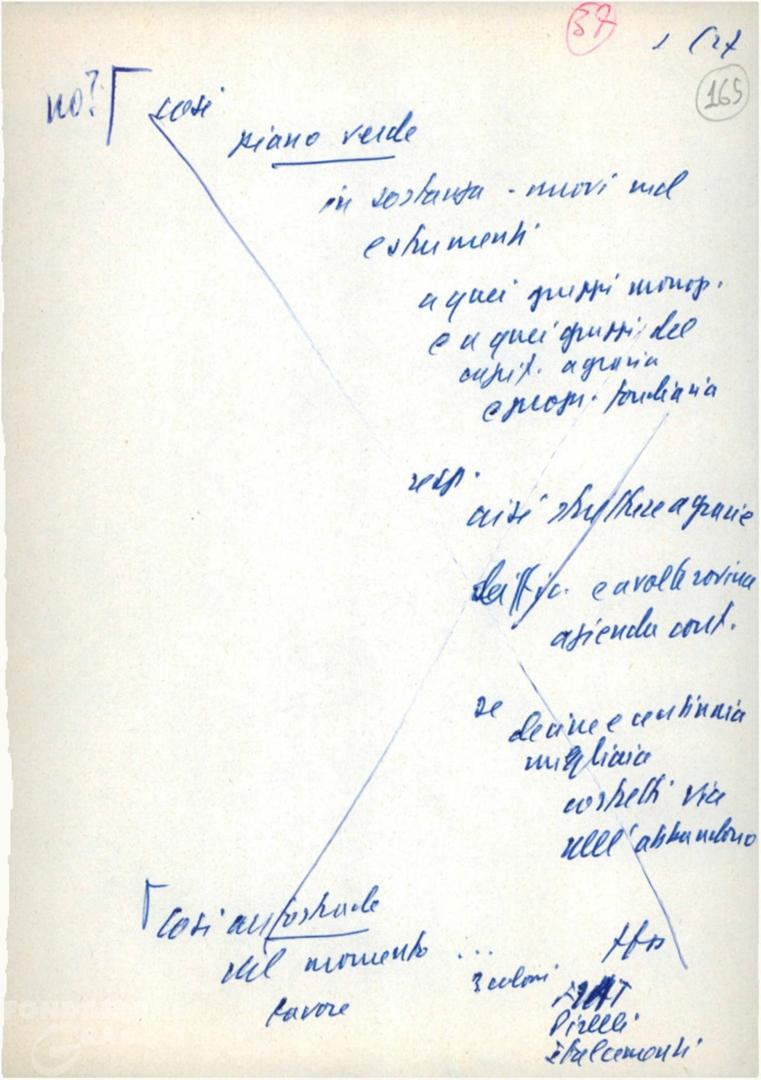 37
165
no?
così
piano verde
in sostanza - nuovi
e strumenti
a quei gruppi monop.
e a quei gruppi del
capit. agraria
e propr. fondiaria
crisi strutture agrarie
e a volte rovina
azienda cont.
se
decine e centinaia
migliaia
costretti via
nell'abbandono
così autostrade
nel momento ...
favore
3 coloni
FIAT
Pirelli
Italcementi